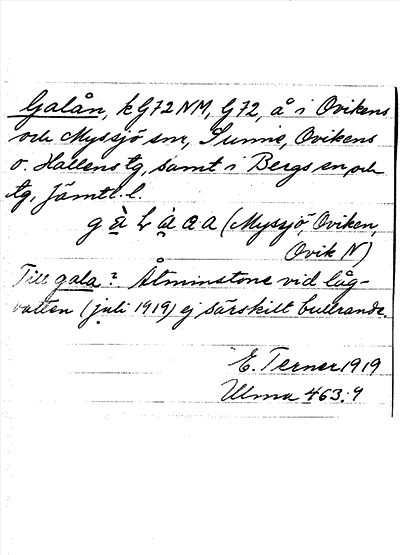 Galån, k G72 NM, G72, å i Ovikens
och Myssjö snr, Sunne, Ovikens
o. Hallens tg, samt i Bergs sn och
tg, Jämtl. l.
(Myssjö, Oviken,
Ovik N)
Till gala? Åtminstone vid låg-
vatten (juli 1919) ej särskilt bullrande.
E. Terner 1919
Ulma 463:9